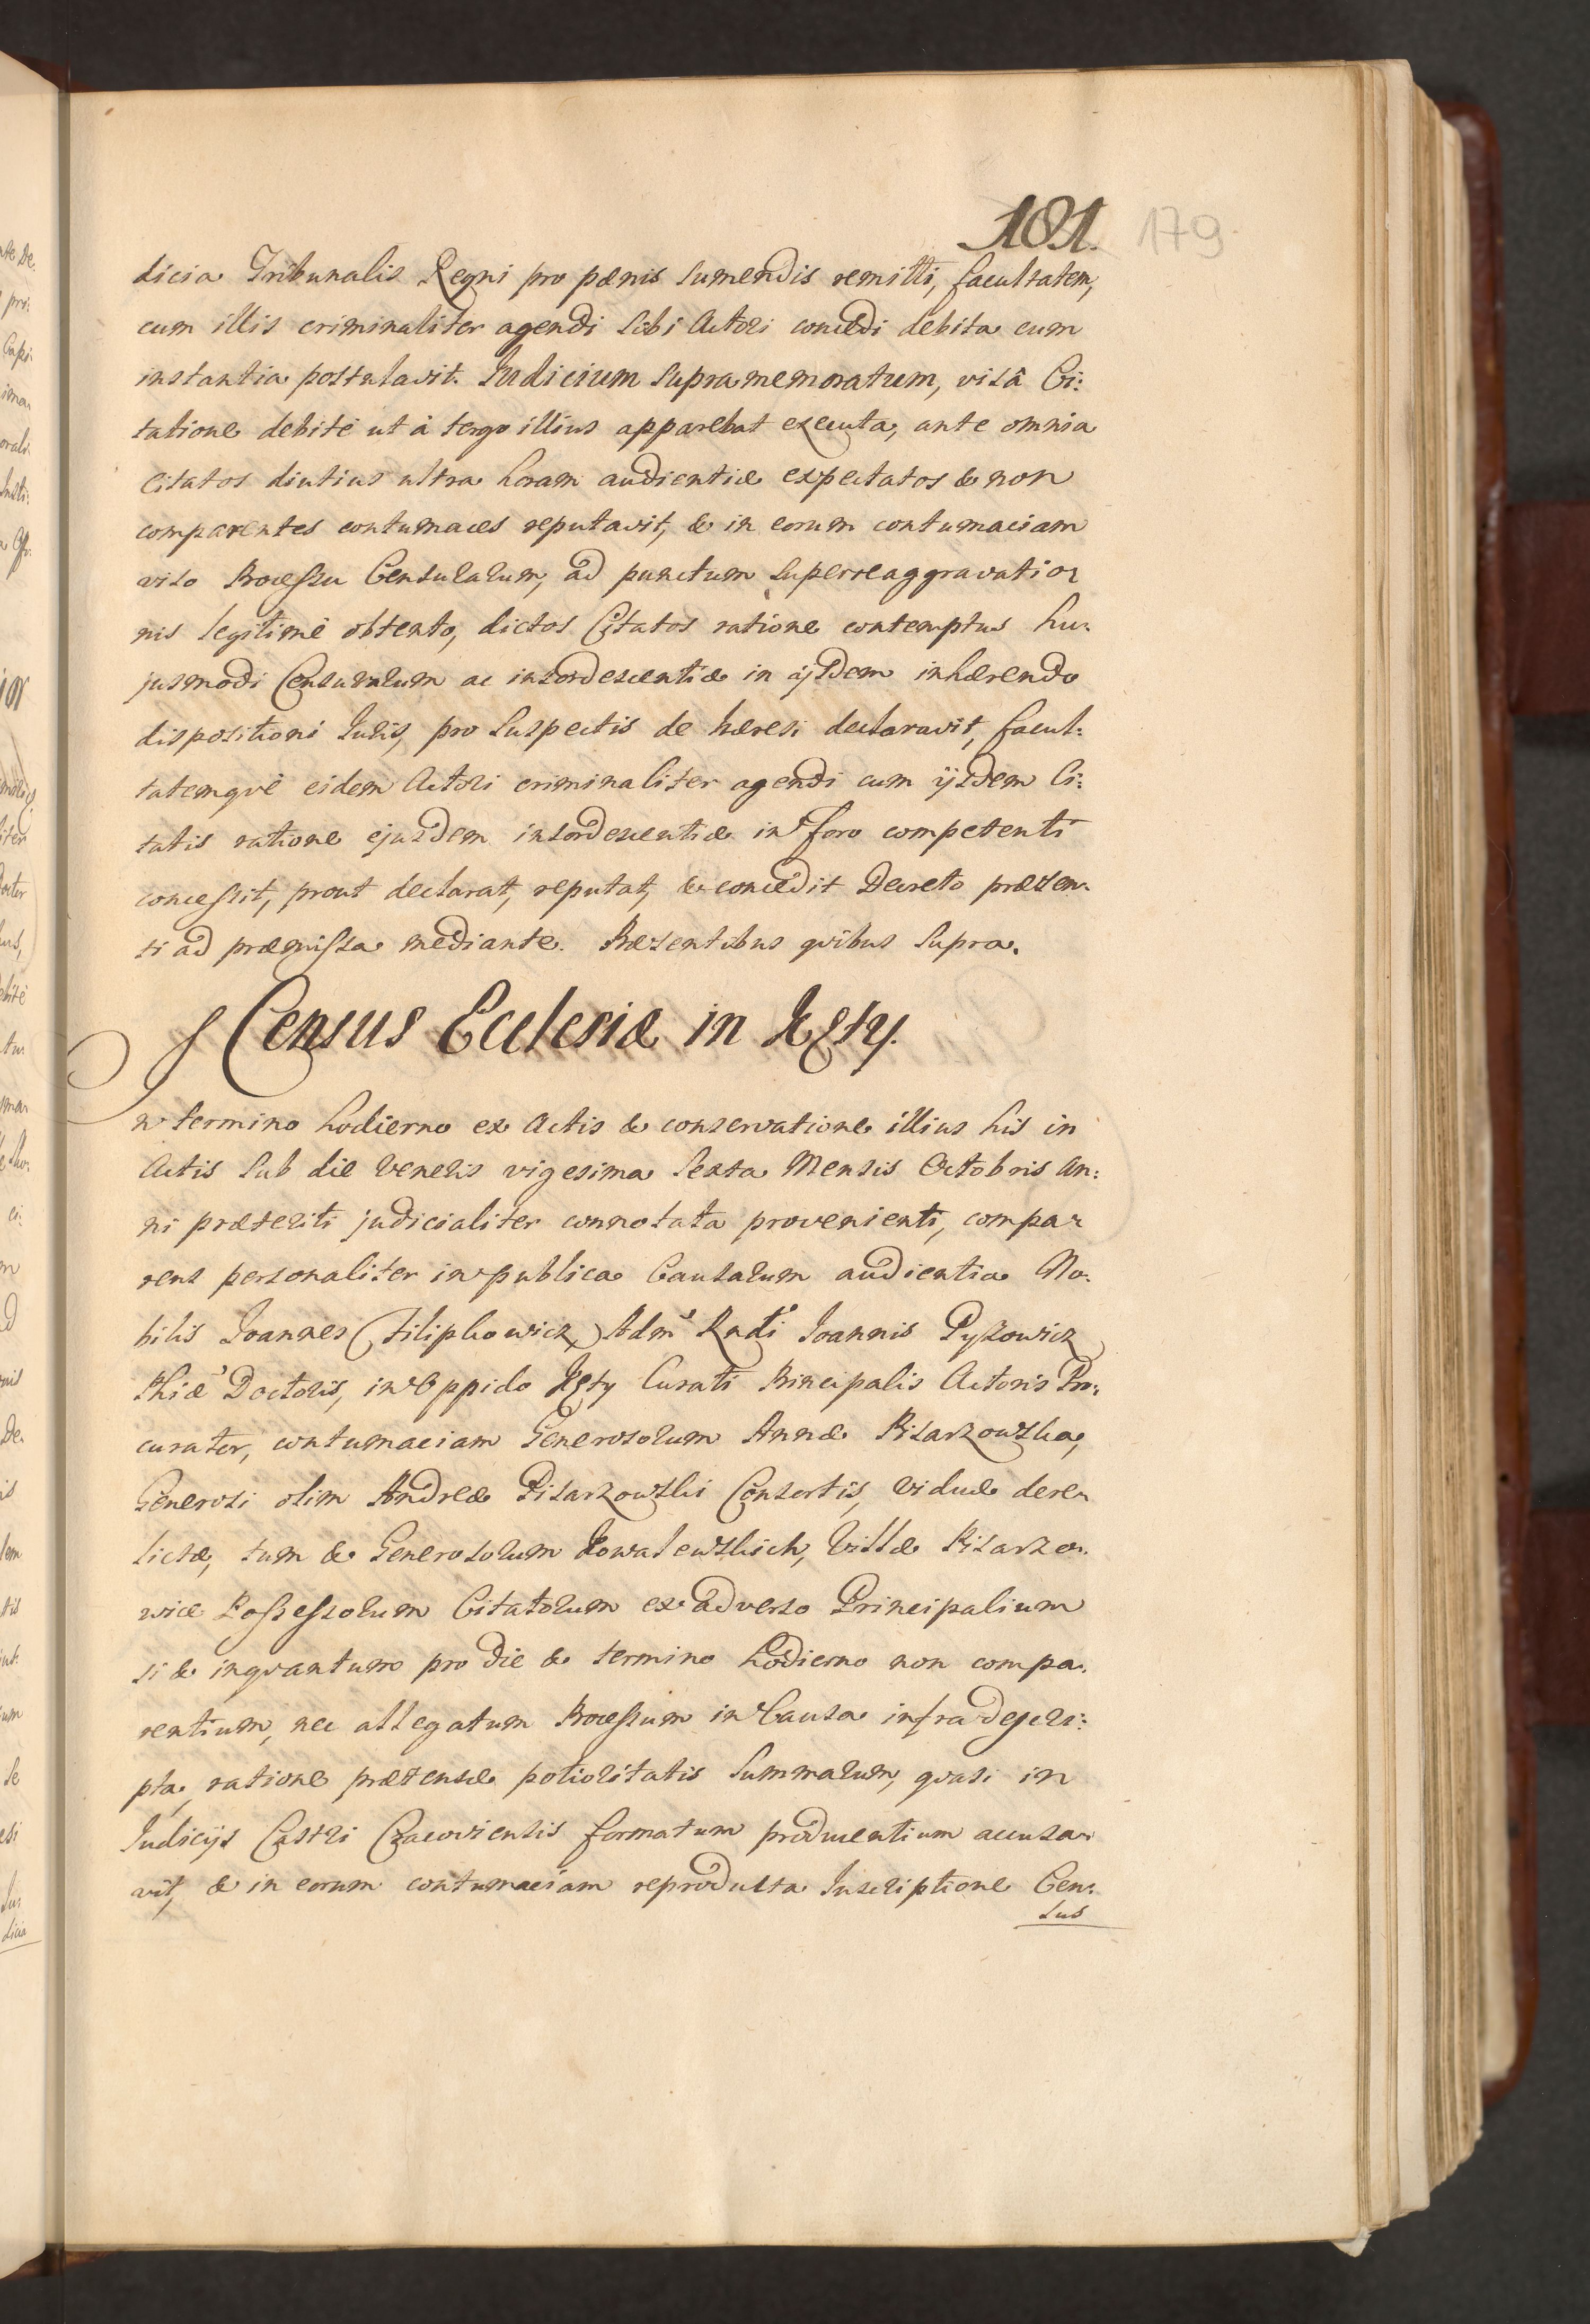 181. 179.
dicia Tribunalis Regni pro pænis sumendis remitti, facultatem,
cum illis criminaliter agendi sibi Actori concedi debita cum
instantia postulavit. Judicium supramemoratum, visâ Ci:
tatione debitè ut à tergo illius apparebat executa, ante omnia
Citatos diutius ultra horam audientiæ expectatos & non
comparentes contumaces reputavit, & in eorum contumaciam
viso Processu Censurarum, ad punctum superreaggravatio-
nis legitimè obtento, dictos Citatos ratione contemptus hu-
jusmodi Censurarum ac insordescentiæ in ijsdem inhærendo
dispositioni Juris, pro suspectis de hæresi declaravit, facul:
tatemqvè eidem Actori criminaliter agendi cum ijsdem Ci:
tatis ratione ejusdem insordescentiæ in foro competenti
concessit, prout declarat, reputat, & concedit Decreto præsen-
ti ad præmissa mediante. Præsentibus qvibus supra.
Census Ecclesiæ in Kęty.
In termino hodierno ex Actis & conservatione illius his in
Actis sub die Veneris vigesima sexta Mensis Octobris An:
ni præteriti judicialiter connotata provenienti, compa-
rens personaliter in publica Causarum audientia No-
bilis Joannes Filipkowicz Adm Rndi Joannis Pyzowicz
Phiæ Doctoris, in Oppido Kęty Curati Principalis Actoris Pro-
curator, contumaciam Generosorum Annæ Pisarzowska,
Generosi olim Andreæ Pisarzowski Consortis, viduæ dere-
lictæ, tum & Generosorum Kowalewskich, Villæ Pisarzo-
wice Possessorum Citatorum ex adverso Principalium
si & inqvantum pro die & termino hodierno non compa-
rentium, nec allegatum Processum in Causa infradescri:
pta, ratione prætensæ potioritatis summarum, qvasi in
Judicijs Castri Cracoviensis formatum producentium accusa-
vit, & in eorum contumaciam reproducta Inscriptione Cen-
sus